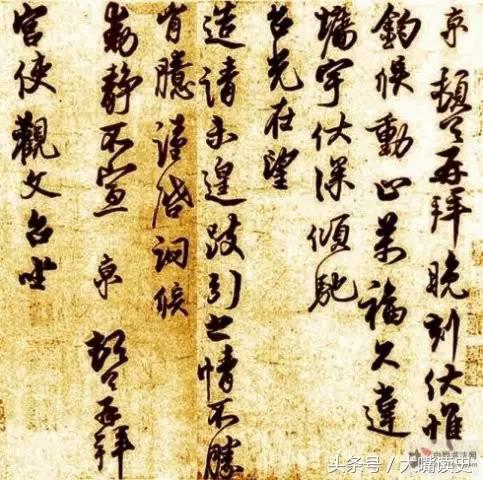 京頓首再拜晚刻伏惟
鈞候動止萬福久違
牆宇伏深傾馳
台光在望
造請未遑跂引之情不勝
胷臆謹啓詗候
動靜不宣 京 頓首再拜
宮使觀文台坐
头条号/大嘴读史